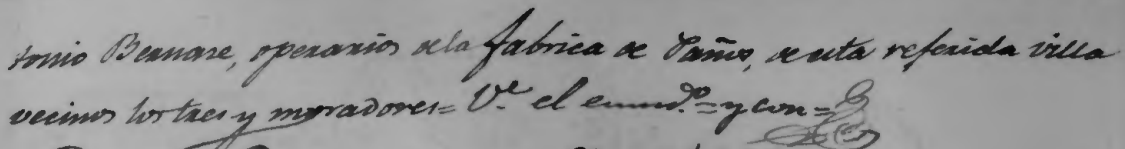 tonio Bernare, operarios dela fabrica de Paños, de esta referida villa
vecinos los tres y moradores= V.e el enmd.o = y con =